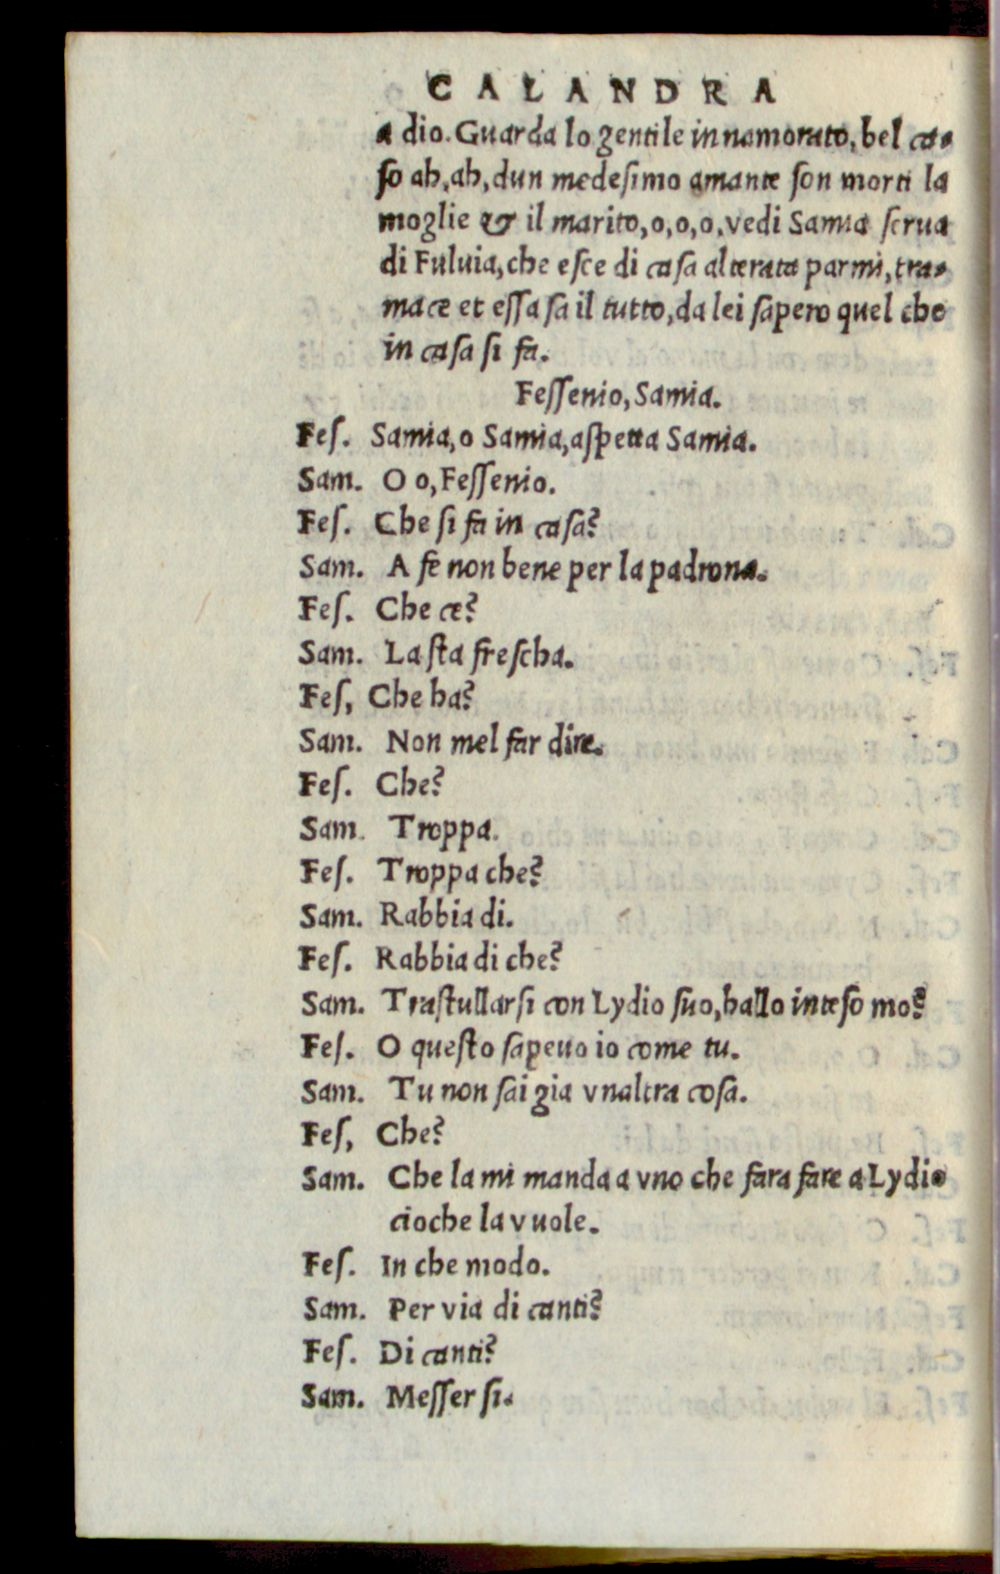 CALANDRA
a dio. Guarda lo gentile innamorato, bel ca-
ſo ah, ah, dun medeſimo amante ſon morti la
moglie & il marito, o, o, o, vedi Samia ſerua
di Fuluia, che eſce di caſa alterata parmi, tra-
mace et eſſa ſa il tutto, da lei ſapero quel che
in caſa ſi fa.
Feſſenio, Samia.
Feſ. Samia, o Samia, aſpetta Samia.
Sam. O o, Feſſenio.
Feſ. Che ſi fa in caſa?
Sam. A fe non bene per la padrona.
Feſ. Che ce?
Sam. La ſta freſcha.
Feſ, Che ha?
Sam. Non mel far dire.
Feſ. Che?
Sam. Troppa.
Feſ. Troppa che?
Sam. Rabbia di.
Feſ. Rabbia di che?
Sam. Traſtullarſi con Lydio ſuo, hallo inteſo mo?
Feſ. O queſto ſapeuo io come tu.
Sam. Tu non ſai gia vnaltra coſa.
Feſ, Che?
Sam. Che la mi manda a vno che fara fare a Lydio
cioche la vuole.
Feſ. In che modo.
Sam. Per via di canti?
Feſ. Di canti?
Sam. Meſſer ſi.